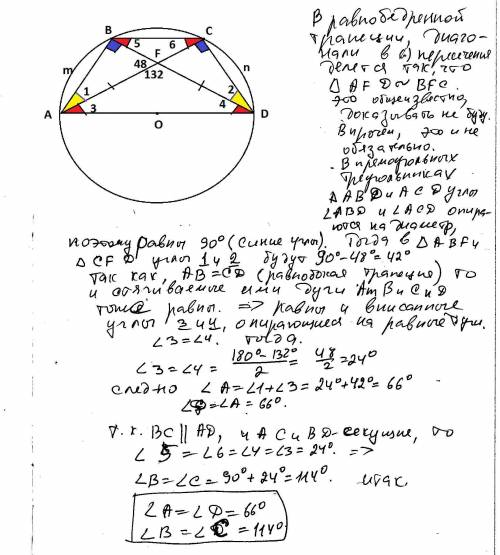 B
C
5
6
F
48
132
m
n
1
2
3
4
A
D
O
В равнобедренной
трапеции, диаго-
нали в (·) пересечения
делятся так, что
△ AFD ∾ BFC.
это общеизвестно,
доказывать не буду.
Впрочем, это и не
обязательно.
В прямоугольных
треугольниках
△ABD и ACD углы
∠ABD и ∠ACD опира-
ются на диаметр,
поэтому равны 90° (синие углы). Тогда в △ ABF и
△ CFD углы 1 и 2 будут 90°-48°=42°
так как, AB=CD (равнобокая трапеция) то
и стягиваемые ими дуги AmB и CnD
тоже равны. => равны и вписанные
углы 3 и 4, опирающиеся на равные дуги.
∠3=∠4. Тогда.
∠3=∠4= 180°-132°/2 = 48/2 = 24°
следно ∠A=∠1+∠3=24°+42°=66°
∠D=∠A=66°.
т.к. BC||AD, и AC и BD-секущие, то
∠5=∠6=∠4=∠3=24°. =>
∠B=∠C=90°+24°=114°. итак
∠A=∠D=66°
∠B=∠C=114°